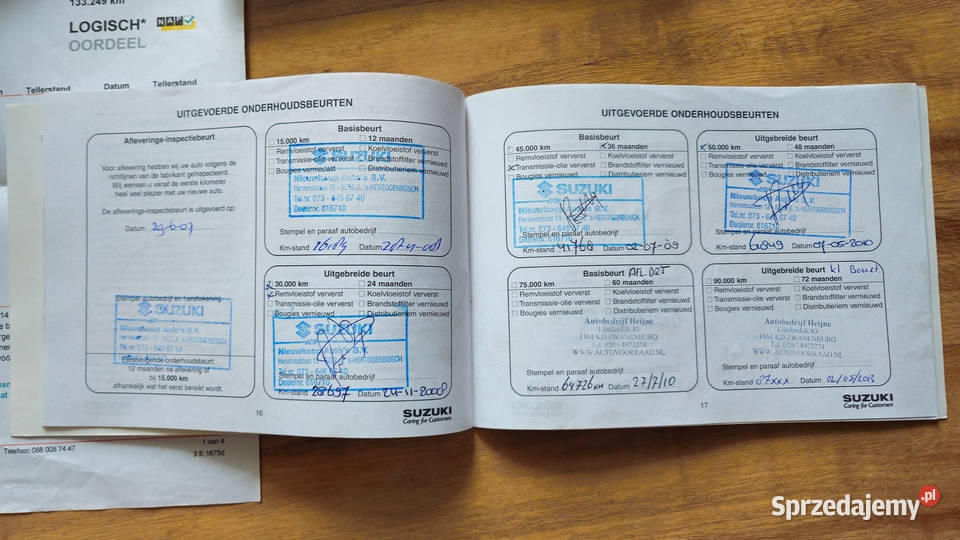 133.249 km
LOGISCH*
NAP
OORDEEL
Tellerstand
Datum
Tellerstand
UITGEVOERDE ONDERHOUDSBEURTEN
Afleverings-inspectiebeurt
Voor aflevering hebben wij uw auto volgens de
richtlijnen van de fabrikant geïnspecteerd.
Wij wensen u vanaf de eerste kilometer
heel veel plezier met uw nieuwe auto.
De afleverings-inspectiebeurt is uitgevoerd op:
Datum 29-6-07
Stempel autobedrijf en handtekening
SUZUKI
Nieuwkoop Auto's B.V.
Eerstvolgende onderhoudsbeurt:
12 maanden na aflevering of
bij 15.000 km
afhankelijk wat het eerst bereikt wordt.
Basisbeurt
15.000 km 12 maanden
Remvloeistof ververst Koelvloeistof ververst
Transmissie-olie ververst Brandstoffilter vernieuwd
Bougies vernieuwd Distributieriem vernieuwd
SUZUKI
Nieuwkoop Auto's B.V.
Tel.nr. 073 - 646 67 40
Dealernr. 616710
Stempel en paraaf autobedrijf
Km-stand Datum
Uitgebreide beurt
30.000 km 24 maanden
Remvloeistof ververst Koelvloeistof ververst
Transmissie-olie ververst Brandstoffilter vernieuwd
Bougies vernieuwd Distributieriem vernieuwd
SUZUKI
Nieuwkoop Auto's B.V.
Stempel en paraaf autobedrijf
Tel.nr. 073 - 646 67 40
Dealernr. 616710
Km-stand 28697 Datum 24-11-2008
16
SUZUKI
Caring for Customers
UITGEVOERDE ONDERHOUDSBEURTEN
Basisbeurt
45.000 km 36 maanden
Remvloeistof ververst Koelvloeistof ververst
Transmissie-olie ververst Brandstoffilter vernieuwd
Bougies vernieuwd Distributieriem vernieuwd
SUZUKI
Nieuwkoop Auto's B.V.
Tel.nr. 073 - 646 67 40
Stempel en paraaf autobedrijf
Dealernr. 616710
Km-stand 41768 Datum 02-07-09
Uitgebreide beurt
60.000 km 48 maanden
Remvloeistof ververst Koelvloeistof ververst
Transmissie-olie ververst Brandstoffilter vernieuwd
Bougies vernieuwd Distributieriem vernieuwd
SUZUKI
Nieuwkoop Auto's B.V.
Tel.nr. 073 - 646 67 40
Stempel en paraaf autobedrijf
Dealernr. 616710
Km-stand Datum 07-05-2010
Basisbeurt
75.000 km 60 maanden
Remvloeistof ververst Koelvloeistof ververst
Transmissie-olie ververst Brandstoffilter vernieuwd
Bougies vernieuwd Distributieriem vernieuwd
Autobedrijf Heijne
Lindedijk 83
1161 KD ZWANENBURG
Tel. 020 - 4973274
WWW.AUTOVOORRAAD.NL
Stempel en paraaf autobedrijf
Km-stand 64726 KM Datum 27/7/10
Uitgebreide beurt kl Beurt
90.000 km 72 maanden
Remvloeistof ververst Koelvloeistof ververst
Transmissie-olie ververst Brandstoffilter vernieuwd
Bougies vernieuwd Distributieriem vernieuwd
Autobedrijf Heijne
Lindedijk 83
1161 KD ZWANENBURG
Tel. 020 - 4973274
WWW.AUTOVOORRAAD.NL
Stempel en paraaf autobedrijf
Km-stand 87xxx Datum 02/05/2013
17
SUZUKI
Caring for Customers
Telefoon 088 008 74 47
1 van 4
3 E 1675d
Sprzedajemy.pl